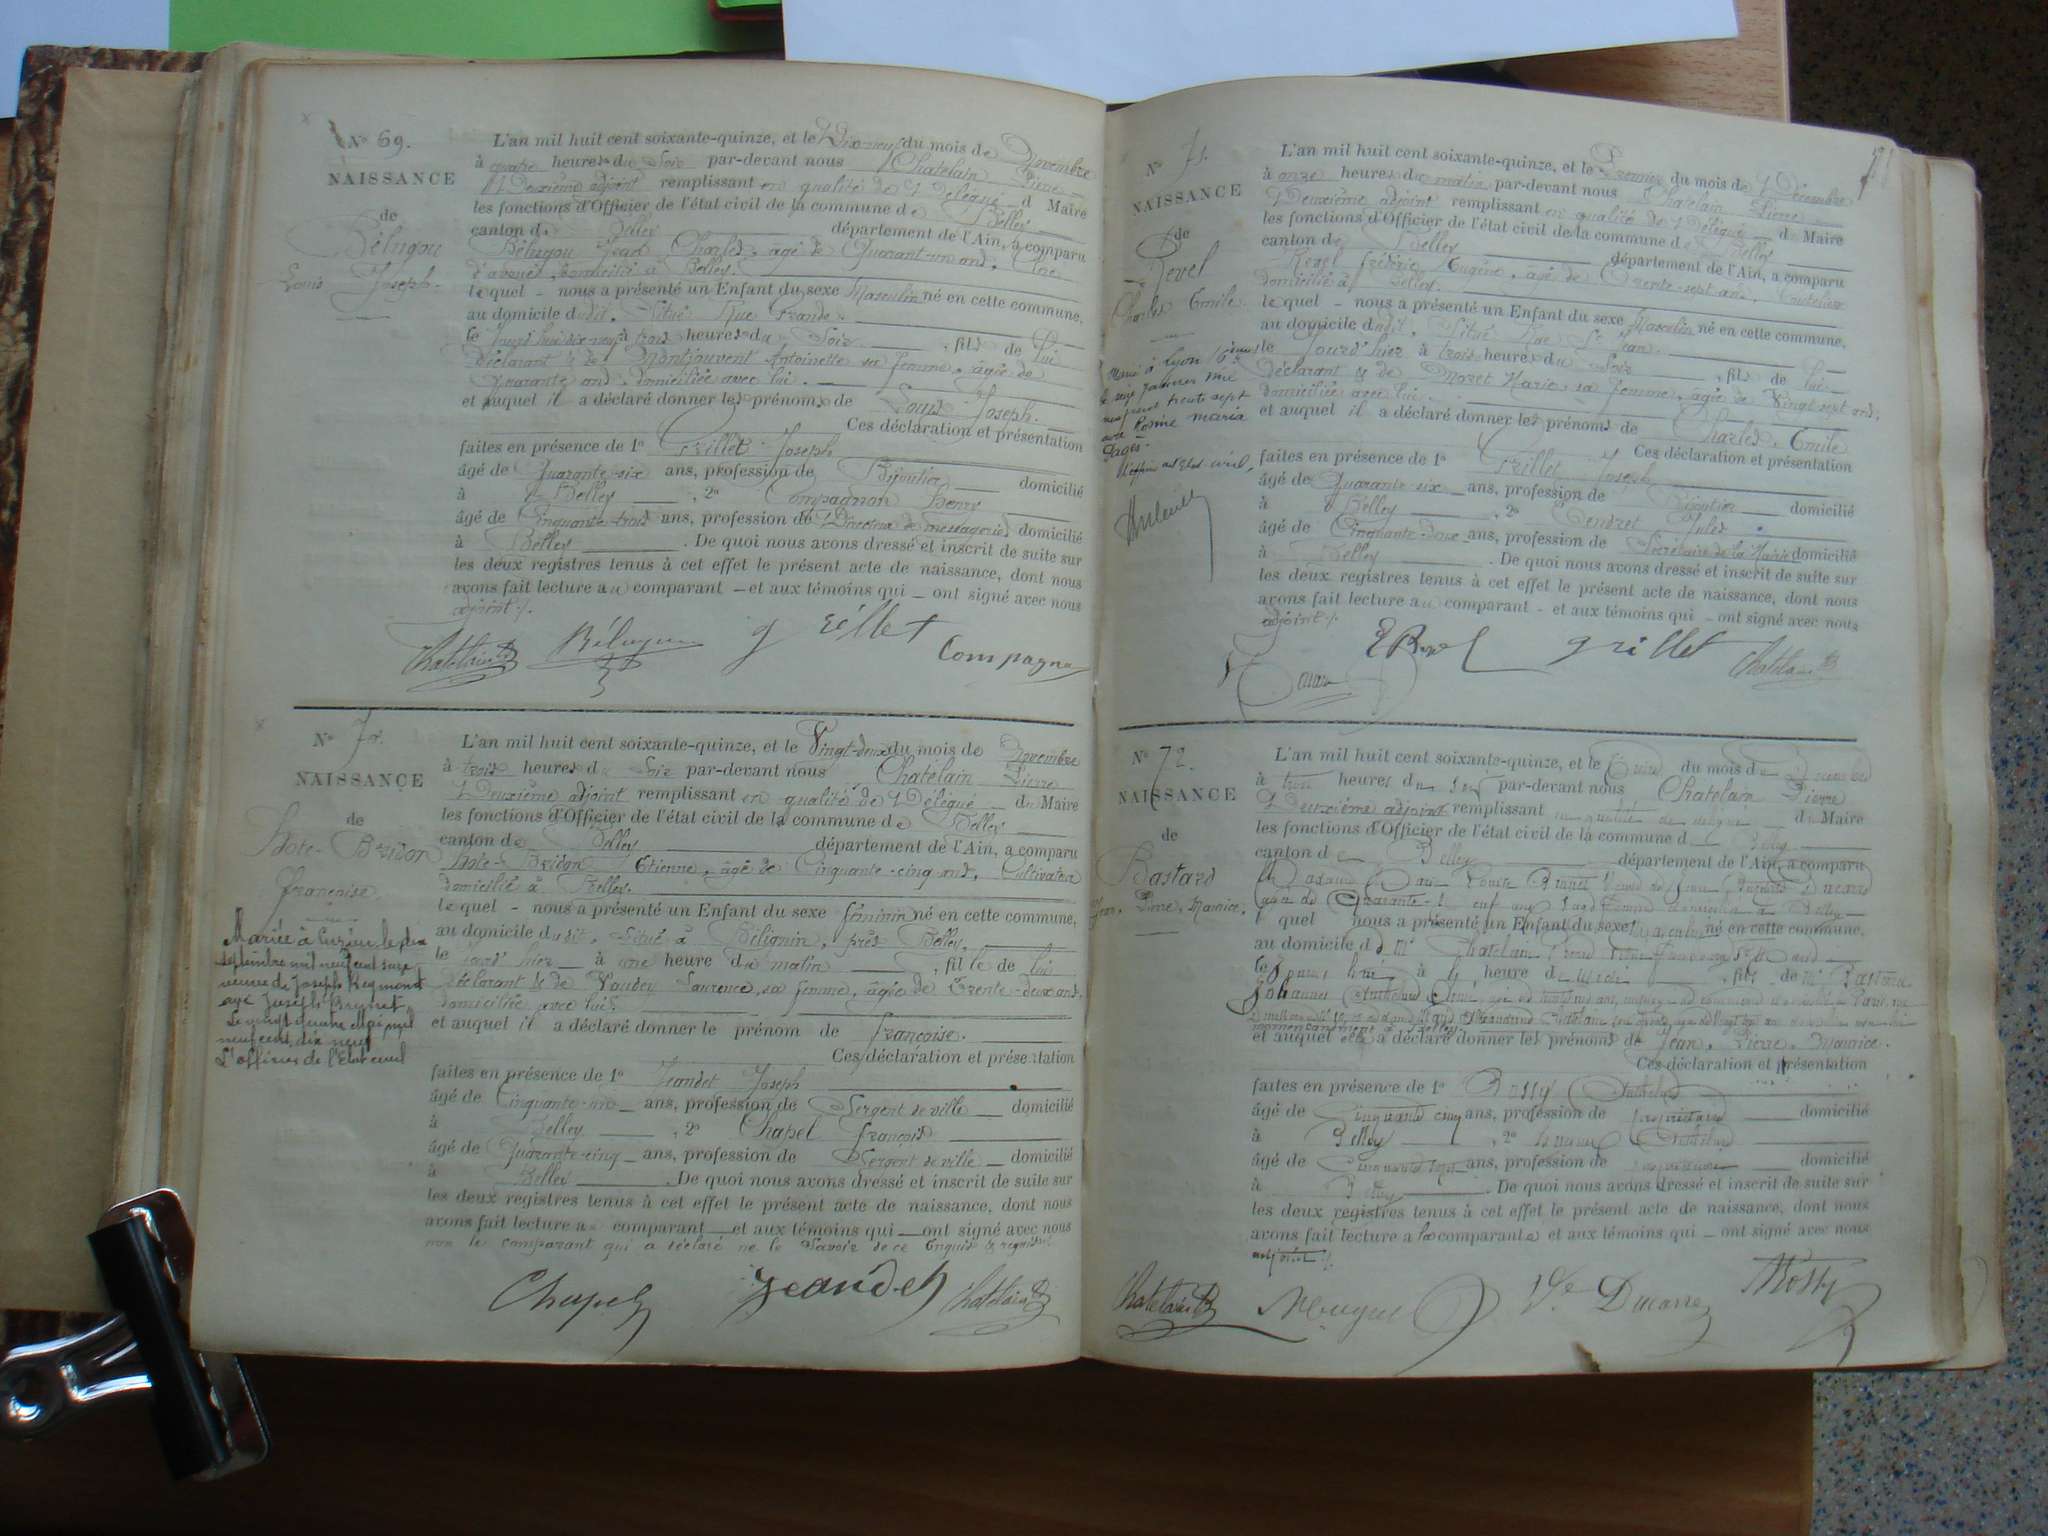 N° 69.
NAISSANCE
de
Bélugou
Louis Joseph.
L'an mil huit cent soixante-quinze, et le Dix-neuf du mois de Novembre
à quatre heures du Soir par-devant nous Chatelain Pierre
Deuxième adjoint remplissant en qualité de Délégué d Maire
les fonctions d'Officier de l'état civil de la commune de Belley
canton de Belley département de l'Ain, a comparu
Bélugou Jean Charles, âgé de Quarant-un ans, Clerc
d'avoué, domicilié à Belley.
lequel - nous a présenté un Enfant du sexe Masculin né en cette commune,
au domicile dudit, Situé Rue Grande
le jourd'hui dix neuf à trois heures du Soir, fils de lui
déclarant & de Montjouvent Antoinette sa femme, âgée de
quarante ans, domiciliée avec lui.
et auquel il a déclaré donner les prénoms de Louis Joseph.
Ces déclaration et présentation
faites en présence de 1° Grillet Joseph
âgé de Quarante-six ans, profession de Bijoutier domicilié
à Belley, 2° Compagnon Henry
âgé de Cinquante trois ans, profession de Directeur de messageries domicilié
à Belley. De quoi nous avons dressé et inscrit de suite sur
les deux registres tenus à cet effet le présent acte de naissance, dont nous
avons fait lecture au comparant - et aux témoins qui - ont signé avec nous
adjoint ./.
Chatelain Bélugou grillet Compagnon
N° 70.
NAISSANCE
de
Hote-Bridon
Françoise
Mariée à
septembre mil neuf cent
veuve de Joseph Reymond
avec Joseph
mil
neuf cent dix neuf
L'officier de l'Etat civil
L'an mil huit cent soixante-quinze, et le Vingt-deux du mois de Novembre
à trois heures du Soir par-devant nous Chatelain Pierre
Deuxième adjoint remplissant en qualité de Délégué du Maire
les fonctions d'Officier de l'état civil de la commune de Belley
canton de Belley département de l'Ain, a comparu
Hote-Bridon Etienne, âgé de Cinquante-cinq ans, Cultivateur
domicilié à Belley.
lequel - nous a présenté un Enfant du sexe féminin né en cette commune,
au domicile dudit, Situé à Bélignin, près Belley,
le jourd'hier à une heure du matin, fille de lui
déclarant & de Vaudey Laurence, sa femme, âgée de Trente-deux ans,
domiciliée avec lui.
et auquel il a déclaré donner le prénom de françoise.
Ces déclaration et présentation
faites en présence de 1° Jeandet Joseph
âgé de Cinquante-un ans, profession de Sergent de ville domicilié
à Belley, 2° Chapel françois
âgé de Quarante-cinq ans, profession de Sergent de ville domicilié
à Belley. De quoi nous avons dressé et inscrit de suite sur
les deux registres tenus à cet effet le présent acte de naissance, dont nous
avons fait lecture au comparant et aux témoins qui ont signé avec nous
non le comparant qui a déclaré ne le Savoir de ce Enquis & requis ./.
Chapel Jeandet Chatelain
N° 71.
NAISSANCE
de
Revel
Charles Emile
Marié à Lyon
le seize janvier mil
neuf cent trente sept
avec Rosine Maria
Pagès
L'officier de l'Etat-civil,
L'an mil huit cent soixante-quinze, et le Premier du mois de Décembre
à onze heures du matin par-devant nous Chatelain Pierre
Deuxième adjoint remplissant en qualité de Délégué du Maire
les fonctions d'Officier de l'état civil de la commune de Belley
canton de Belley département de l'Ain, a comparu
Revel Frédéric Eugène, âgé de Trente-sept ans, Coutelier
domicilié à Belley.
lequel - nous a présenté un Enfant du sexe Masculin né en cette commune,
au domicile dudit, Situé Rue St Jean.
le jourd'hier à trois heures du Soir, fils de lui
déclarant & de Moret Marie, sa femme, âgée de Vingt sept ans,
domiciliée avec lui.
et auquel il a déclaré donner les prénoms de Charles, Emile
Ces déclaration et présentation
faites en présence de 1° Grillet Joseph
âgé de Quarante six ans, profession de Bijoutier domicilié
à Belley, 2° Tendret Jules
âgé de Cinquante-deux ans, profession de Secrétaire de la Mairie domicilié
à Belley. De quoi nous avons dressé et inscrit de suite sur
les deux registres tenus à cet effet le présent acte de naissance, dont nous
avons fait lecture au comparant - et aux témoins qui - ont signé avec nous
adjoint ./.
E Revel grillet Chatelain
N° 72.
NAISSANCE
de
Bastard
Jean, Pierre, Maurice.
L'an mil huit cent soixante-quinze, et le Trois du mois de Décembre
à trois heures du soir par-devant nous Chatelain Pierre
Deuxième adjoint remplissant en qualité de délégué du Maire
les fonctions d'Officier de l'état civil de la commune de Belley
canton de Belley département de l'Ain, a comparu
Madame Marie Louise Veuve de Ducarre
âgée de Quarante-neuf ans, Sage femme domiciliée à Belley
lequel nous a présenté un Enfant du sexe Masculin né en cette commune,
au domicile de Mr Chatelain
le jourd'hier à heure de, fils de Mr Bastard
Johannès Anthelme
momentanément à Belley
et auquel elle a déclaré donner les prénoms de Jean, Pierre, Maurice.
Ces déclaration et présentation
faites en présence de 1° Rossy Anthelme
âgé de Cinquante cinq ans, profession de propriétaire domicilié
à Belley, 2° Anthelme
âgé de Cinquante sept ans, profession de domicilié
à Belley. De quoi nous avons dressé et inscrit de suite sur
les deux registres tenus à cet effet le présent acte de naissance, dont nous
avons fait lecture a la comparante et aux témoins qui - ont signé avec nous
adjoint ./.
Chatelain Vve Ducarre Rossy